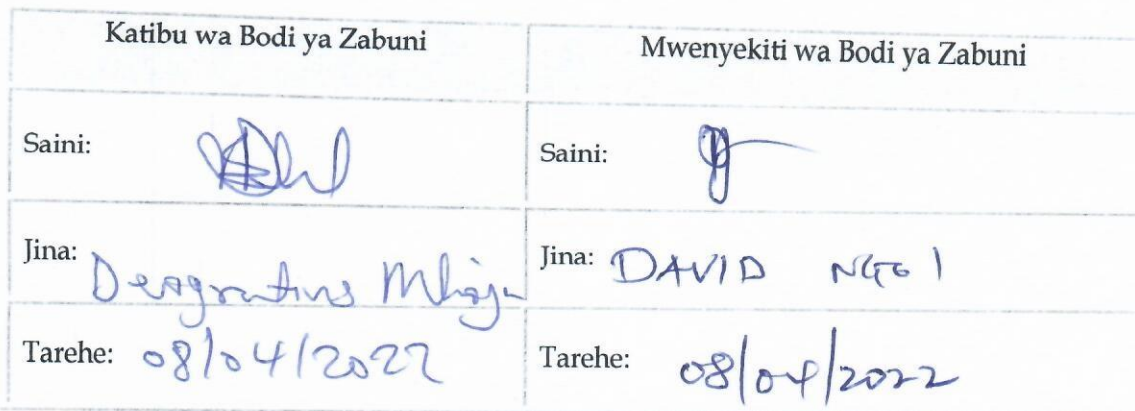 Katibu wa Bodi ya Zabuni
Mwenyekiti wa Bodi ya Zabuni
Saini:
Saini:
Jina: Deogratius Mhoja
Jina: DAVID
Tarehe: 08/04/2022
Tarehe: 08/04/2022